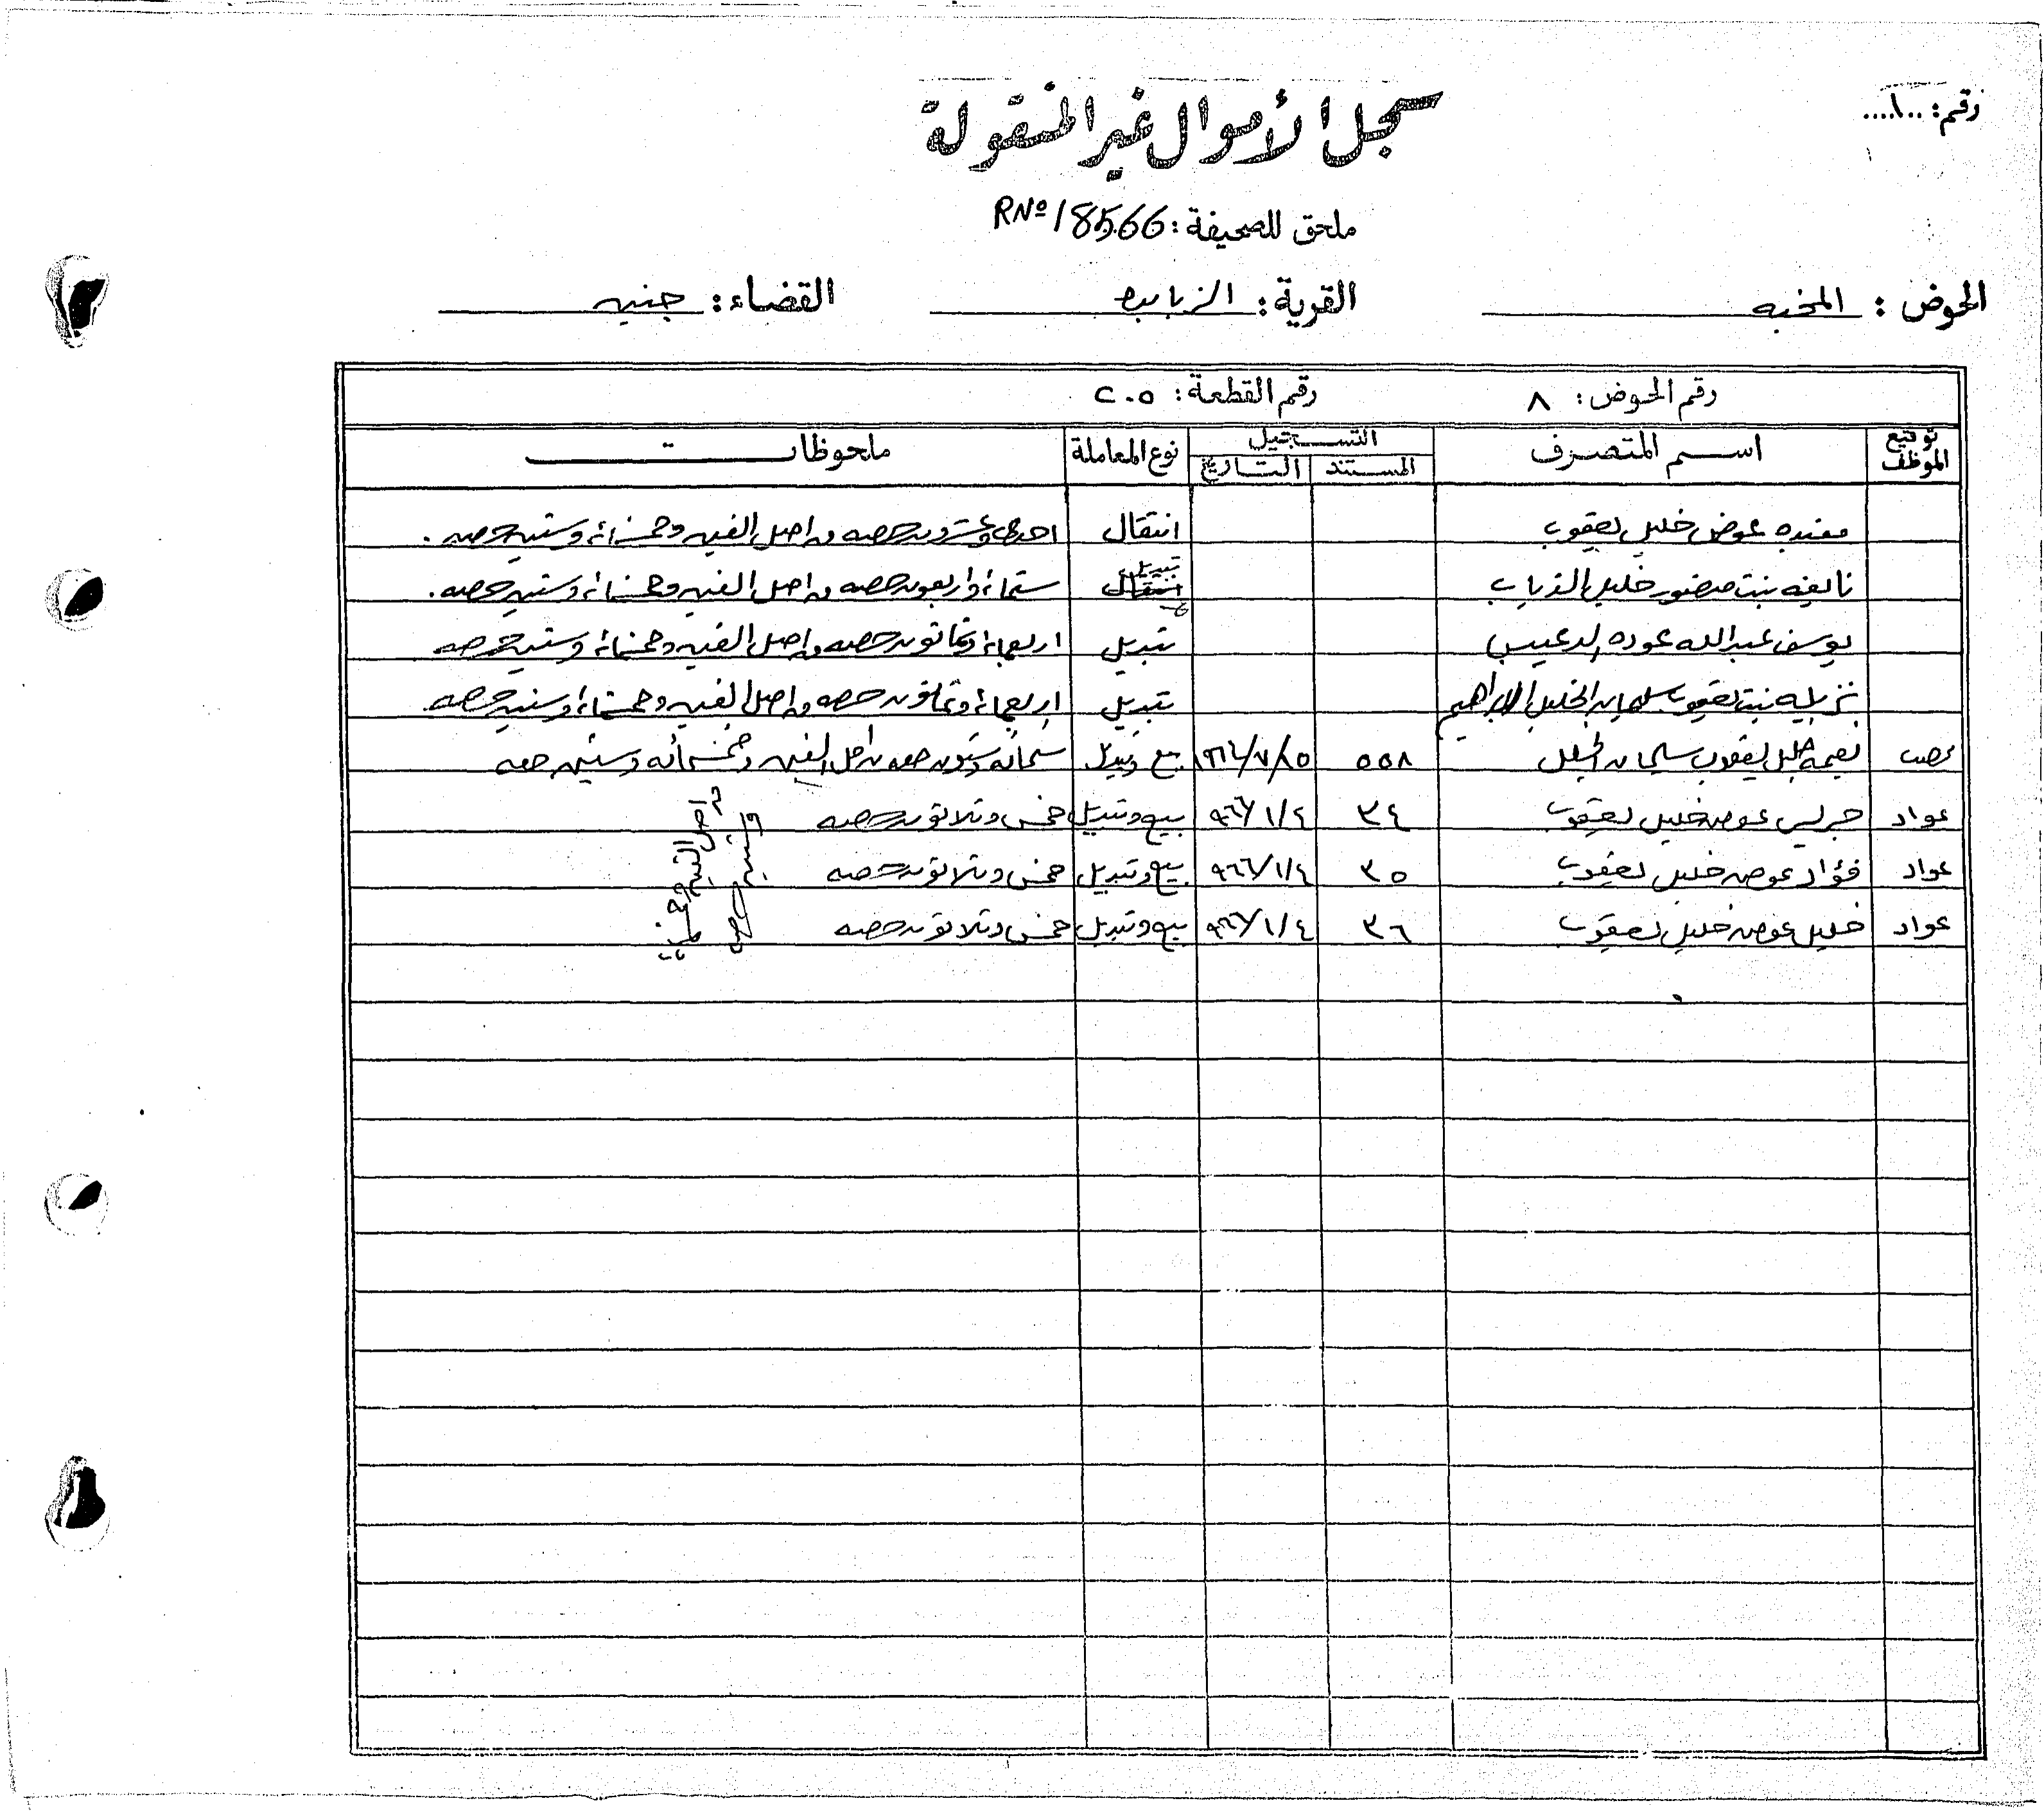 رقم: ..١٠...
سجل الأموال غير المنقولة
ملحق للصحيفة: RNº 18566
الحوض: المخبه القرية: الزبابده القضاء: جنين
رقم الحوض: ٨ رقم القطعة: ٢٠٥
توقيع الموظف اسم المتصرف التسجيل نوع المعاملة ملحوظات
المستند التاريخ
مفيده عوض خليل يعقوب انتقال احدى وعشرون حصه من اصل الفين وخمسمائه وستين حصه.
نايفه بنت منصور خليل الذياب تبديل انتقال ستمائه واربعون حصه من اصل الفين وخمسمائه وستين حصه.
يوسف عبدالله عوده الدعيبس تبديل اربعمائه وثمانون حصه من اصل الفين وخمسمائه وستين حصه
نزيله بنت يعقوب سليمان الخليل الابراهيم تبديل اربعمائه وثمانون حصه من اصل الفين وخمسمائه وستين حصه
نعيمه خليل يعقوب سليمان الخليل ٥٥٨ بيع وتبديل ستمائه وستون حصه من اصل الفين وخمسمائه وستين حصه
عواد جريس عوض خليل يعقوب ٣٤ ٩٦٦/١/٤ بيع وتبديل خمس وثلاثون حصه
عواد فؤاد عوض خليل يعقوب ٣٥ ٩٦٦/١/٤ بيع وتبديل خمس وثلاثون حصه
عواد خليل عوض خليل يعقوب ٣٦ ٩٦٦/١/٤ بيع وتبديل خمس وثلاثون حصه
من اصل الفين وخمسمائه
وستين حصه